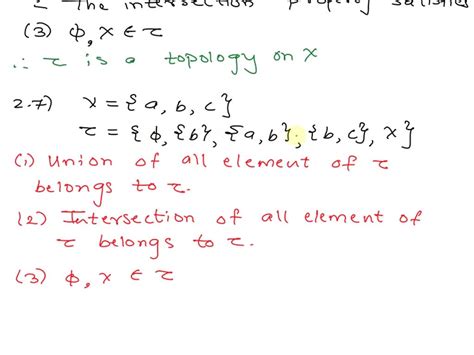 The intersection property satisfies
(3) φ, X ∈ τ
∴ τ is a topology on X
2.7) X = {a, b, c}
τ = {φ, {b}, {a, b}, {b, c}, X}
(1) Union of all element of τ
belongs to τ.
(2) Intersection of all element of
τ belongs to τ.
(3) φ, X ∈ τ